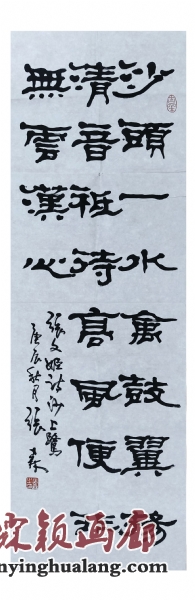 沙頭一水禽鼓翼揚
清音祗待高風便非
無雲漢心
張文姬詩沙上鷺
庚辰秋月張森
颖画廊
nyinghualang.com